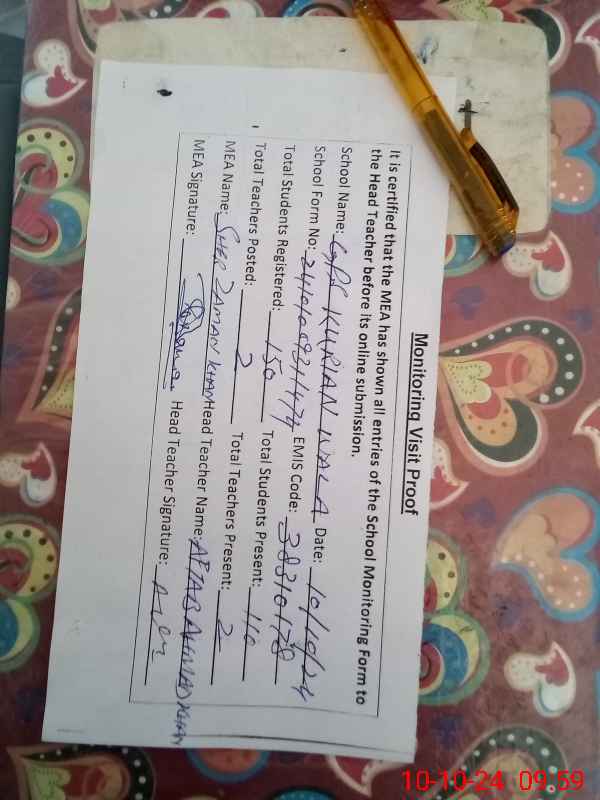 Monitoring Visit Proof
It is certified that the MEA has shown all entries of the School Monitoring Form to
the Head Teacher before its online submission.
School Name: GPS KURIAN WALA Date: 10/10/24
School Form No: EMIS Code: 38310178
Total Students Registered: 150 Total Students Present: 110
Total Teachers Posted: 2 Total Teachers Present: 2
MEA Name: SHER ZAMAN KHAN Head Teacher Name: AFTAB AHMAD KHAN
MEA Signature: Head Teacher Signature:
10-10-24 09:59